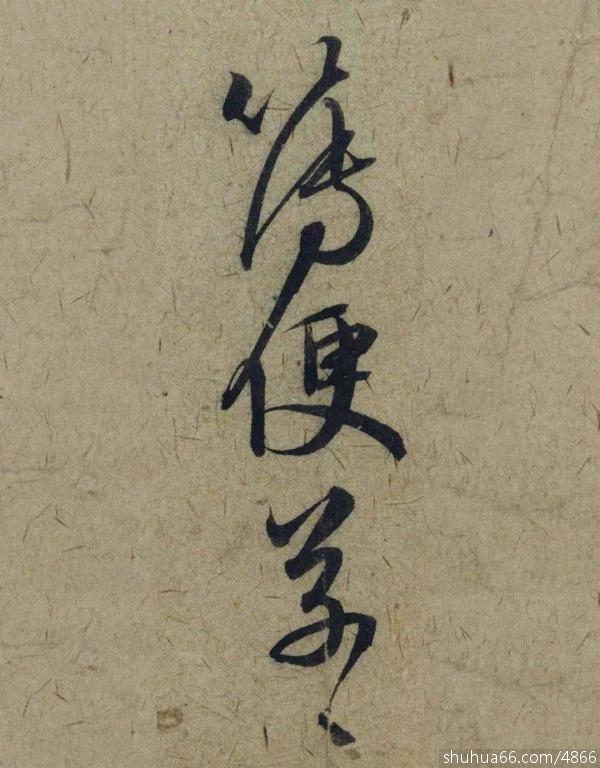 薄便草々
shuhua66.com/4866